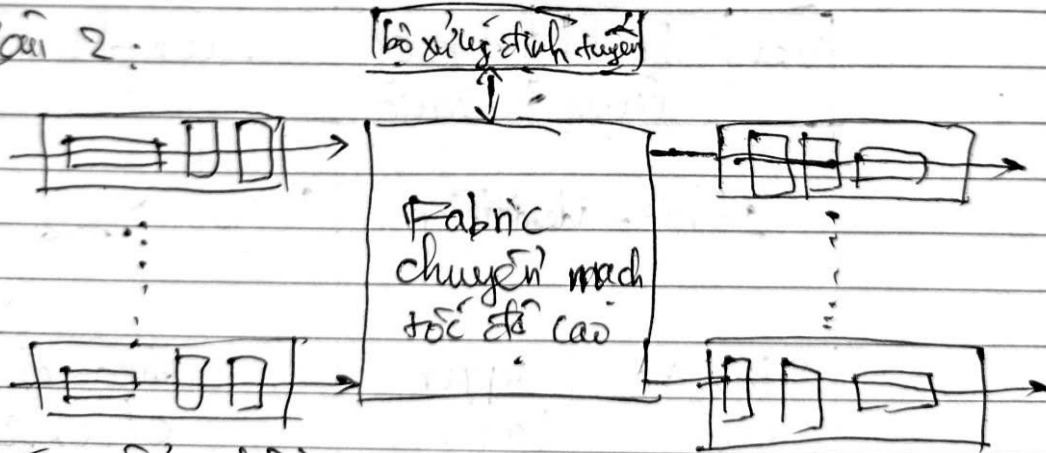 Câu 2:
bộ xử lý định tuyến
Fabric
chuyển mạch
tốc độ cao